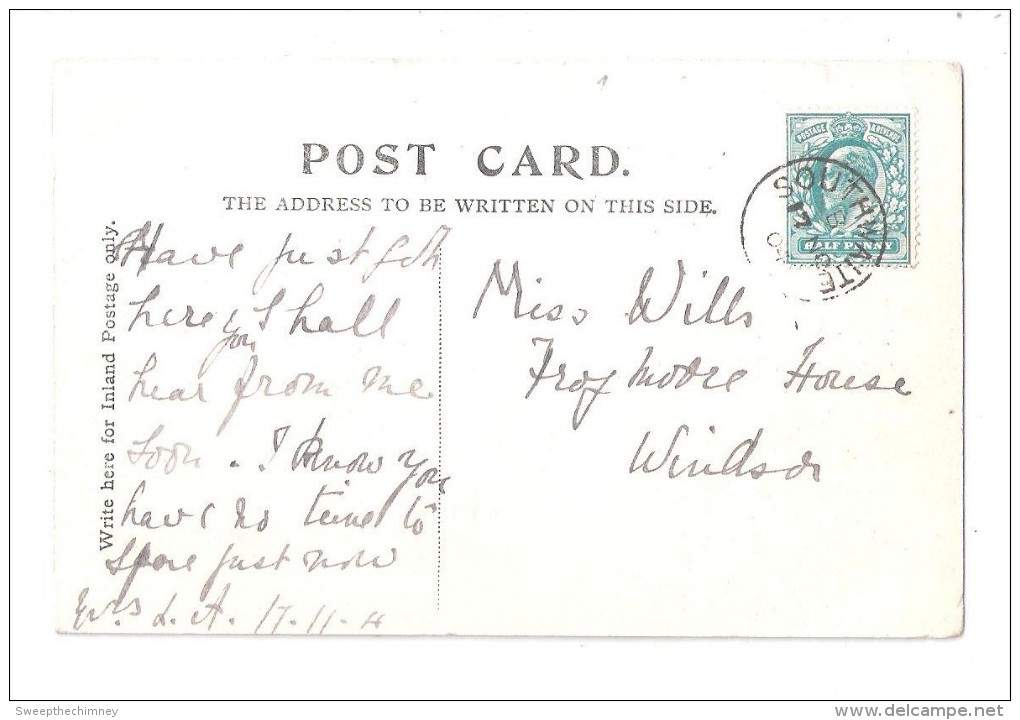 POST CARD.
THE ADDRESS TO BE WRITTEN ON THIS SIDE.
Write here for Inland Postage only.
Have just got
here you shall
hear from me
soon. I know you
have no time to
spare just now
Evrs L. A. 17.11.4
Miss Wills
Frogmore House
Windsor
POSTAGE & REVENUE
HALF PENNY
SOUTHWAITE
Sweepthechimney
delcampe.net